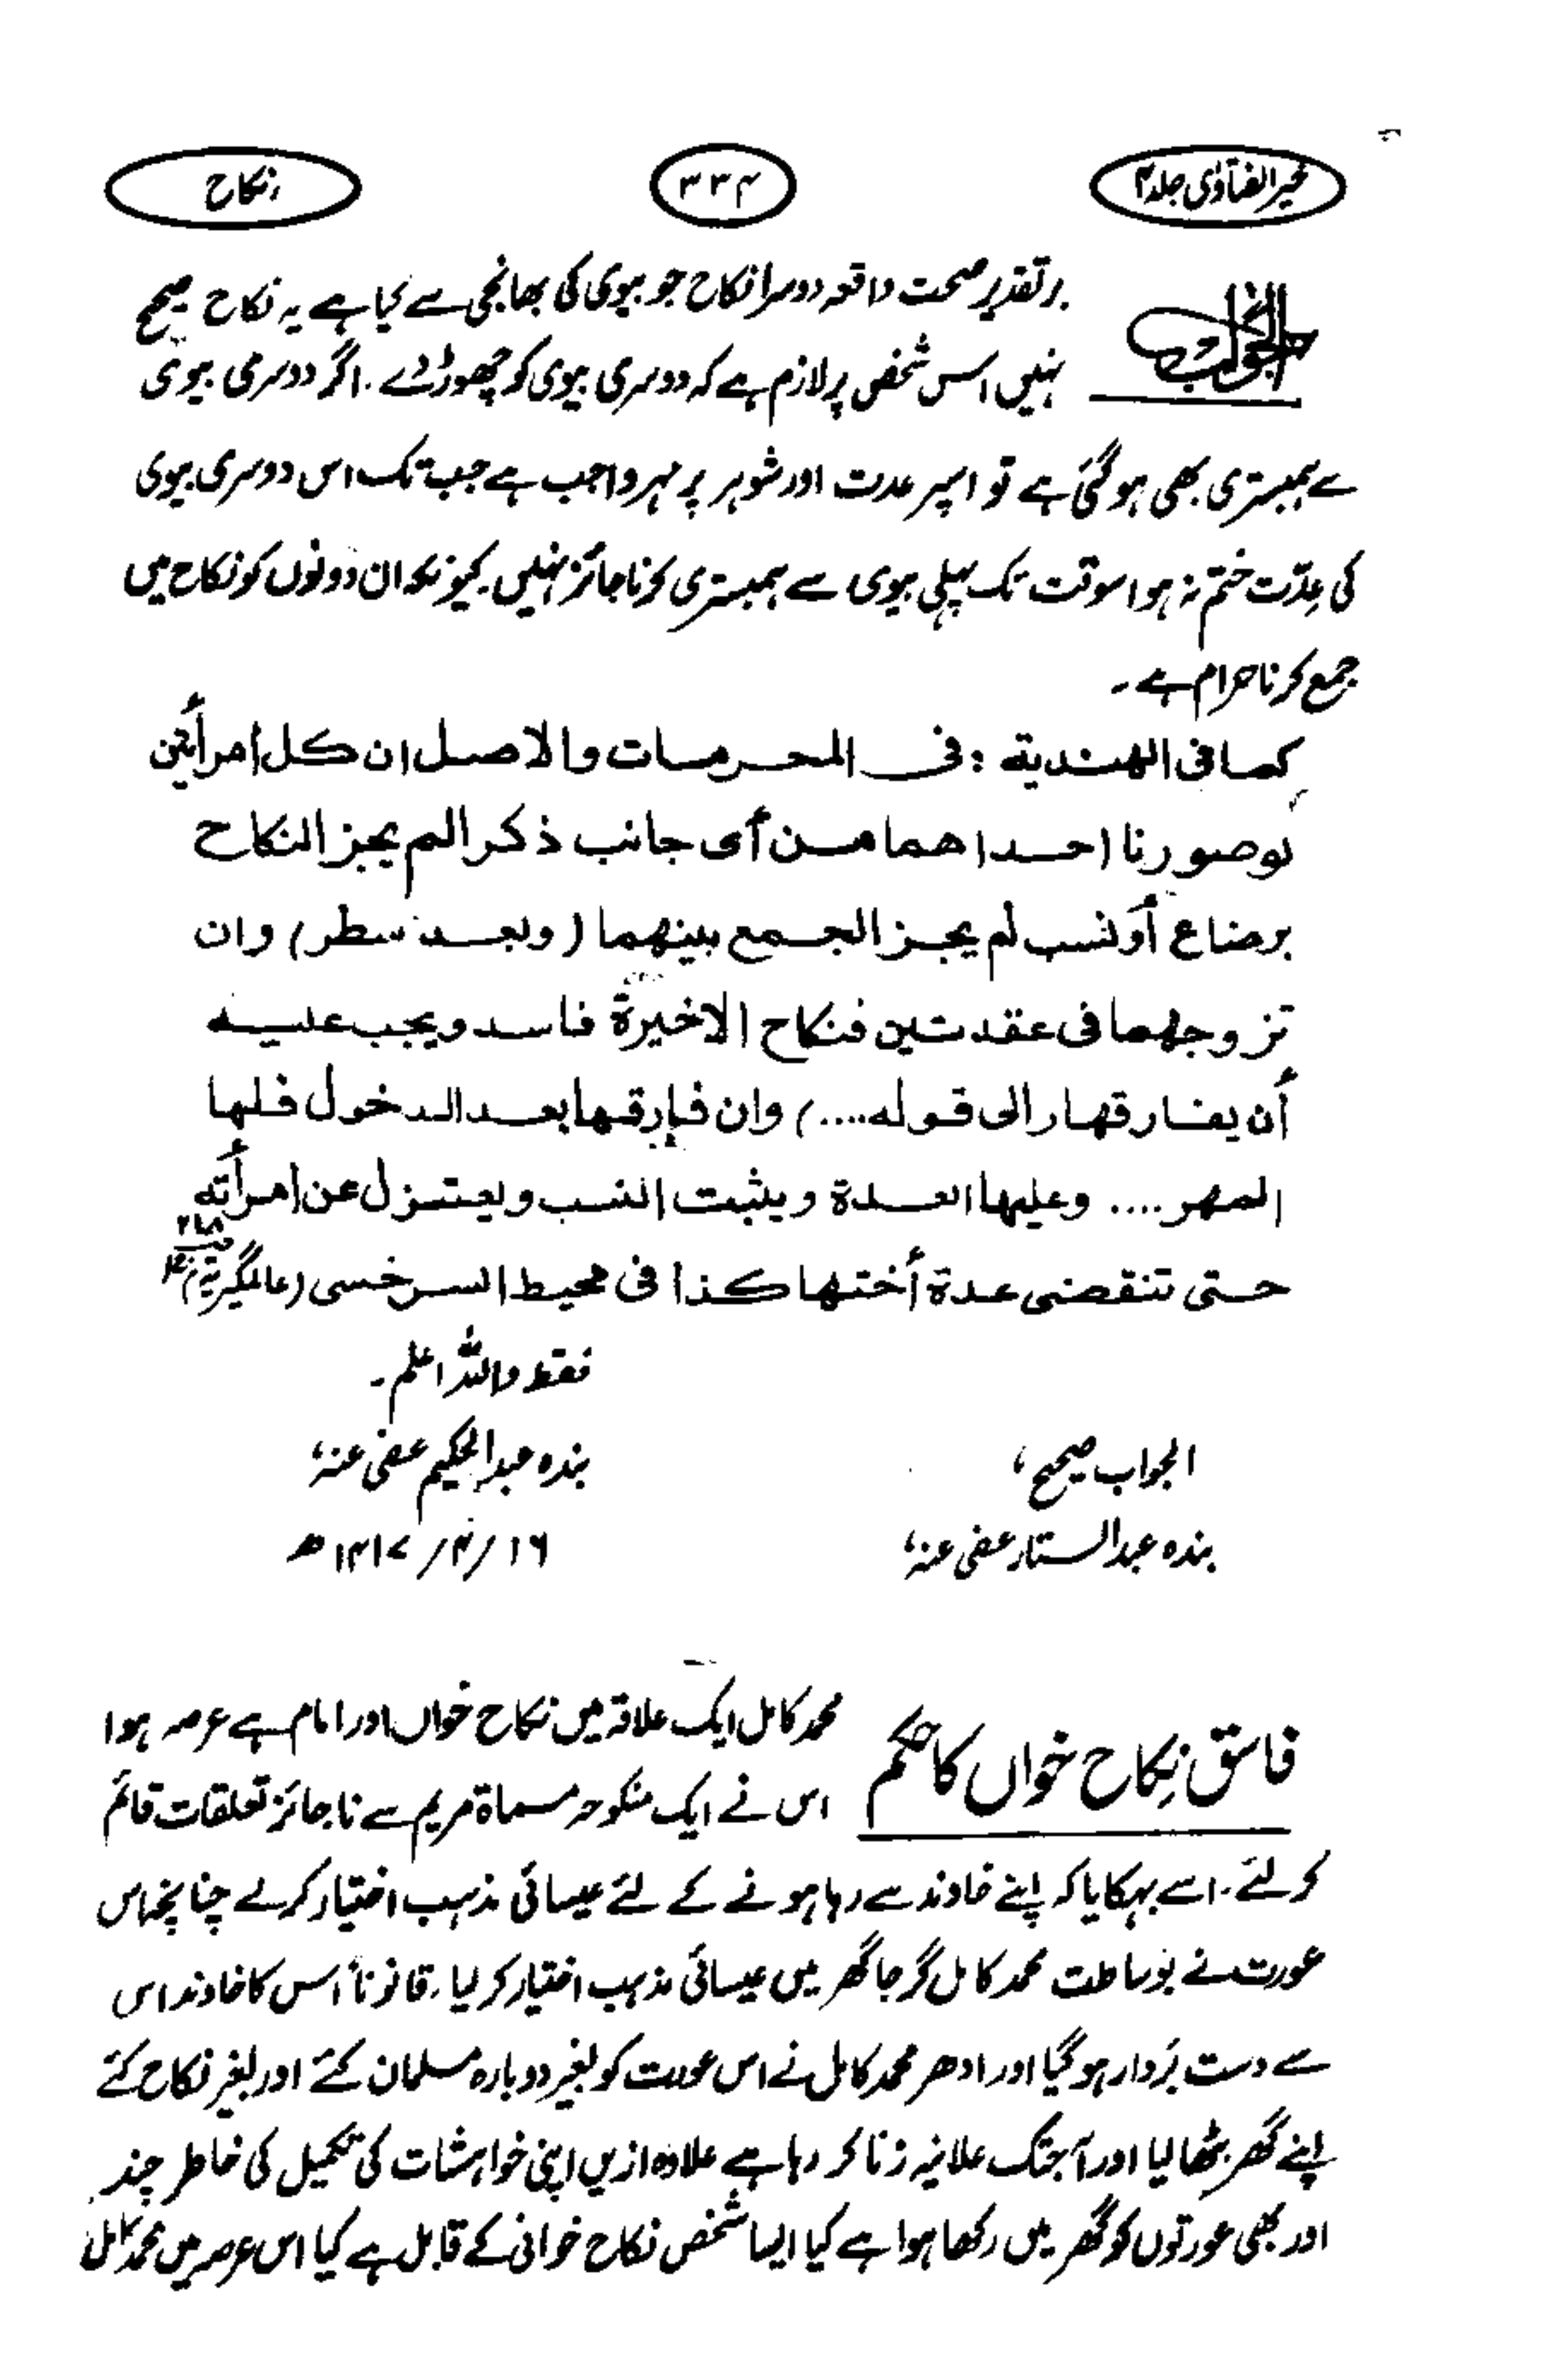 خیر الفتاوٰی جلد ۴
۳۳۴
نکاح
الجواب
برتقدیر صحت واقعہ دوسرا نکاح جو بیوی کی بھانجی سے کیا ہے یہ نکاح صحیح
نہیں اس شخص پر لازم ہے کہ دوسری بیوی کو چھوڑ دے۔ اگر دوسری بیوی
سے ہمبستری بھی ہو گئی ہے تو اسپر عدت اور شوہر پر مہر واجب ہے جب تک اس دوسری بیوی
کی عِدّت ختم نہ ہو اسوقت تک پہلی بیوی سے ہمبستری کرنا جائز نہیں۔ کیونکہ ان دونوں کو نکاح میں
جمع کرنا حرام ہے۔
کما فی الھندیة : فی المحرمات والاصل ان کل أمرأتین
لوصورنا احداھما من أی جانب ذکرا لم یجز النکاح
برضاع أونسب لم یجز الجمع بینھما (وبعد سطر) وان
تزوجھما فی عقدتین فنکاح الاخیرة فاسد ویجب علیہ
أن یفارقھا (الی قولہ....) وان فارقھا بعد الدخول فلھا
المھر.... وعلیھا العدة ویثبت النسب ویعتزل عن امرأتہ
حتی تنقضی عدة أختھا کذا فی محیط السرخسی (عالمگیریة
فقط واللہ اعلم۔
بندہ عبدالحکیم عفی عنہ،
۱۶ / ۴ / ۱۴۱۷ ھ
الجواب صحیح،
بندہ عبدالستار عفی عنہ،
فاسق نِکاح خواں کا حکم
محمد کامل ایک علاقہ میں نکاح خواں اور امام ہے عرصہ ہوا
اس نے ایک منکوحہ مسماة مریم سے ناجائز تعلقات قائم
کر لئے۔ اسے بہکایا کہ اپنے خاوند سے رہا ہونے کے لئے عیسائی مذہب اختیار کر لے چنانچہ اس
عورت نے بوساطت محمد کامل گرجا گھر میں عیسائی مذہب اختیار کر لیا۔ قانوناً اس کا خاوند اس
سے دست بَردار ہو گیا اور ادھر محمد کامل نے اس عورت کو بغیر دوبارہ مسلمان کئے اور بغیر نکاح کئے
اپنے گھر بٹھا لیا اور آجتک علانیہ زنا کر رہا ہے علاوہ ازیں اپنی خواہشات کی تکمیل کی خاطر چند
اور بھی عورتوں کو گھر میں رکھا ہوا ہے کیا ایسا شخص نکاح خوانی کے قابل ہے کیا اس عرصہ میں محمد کامل